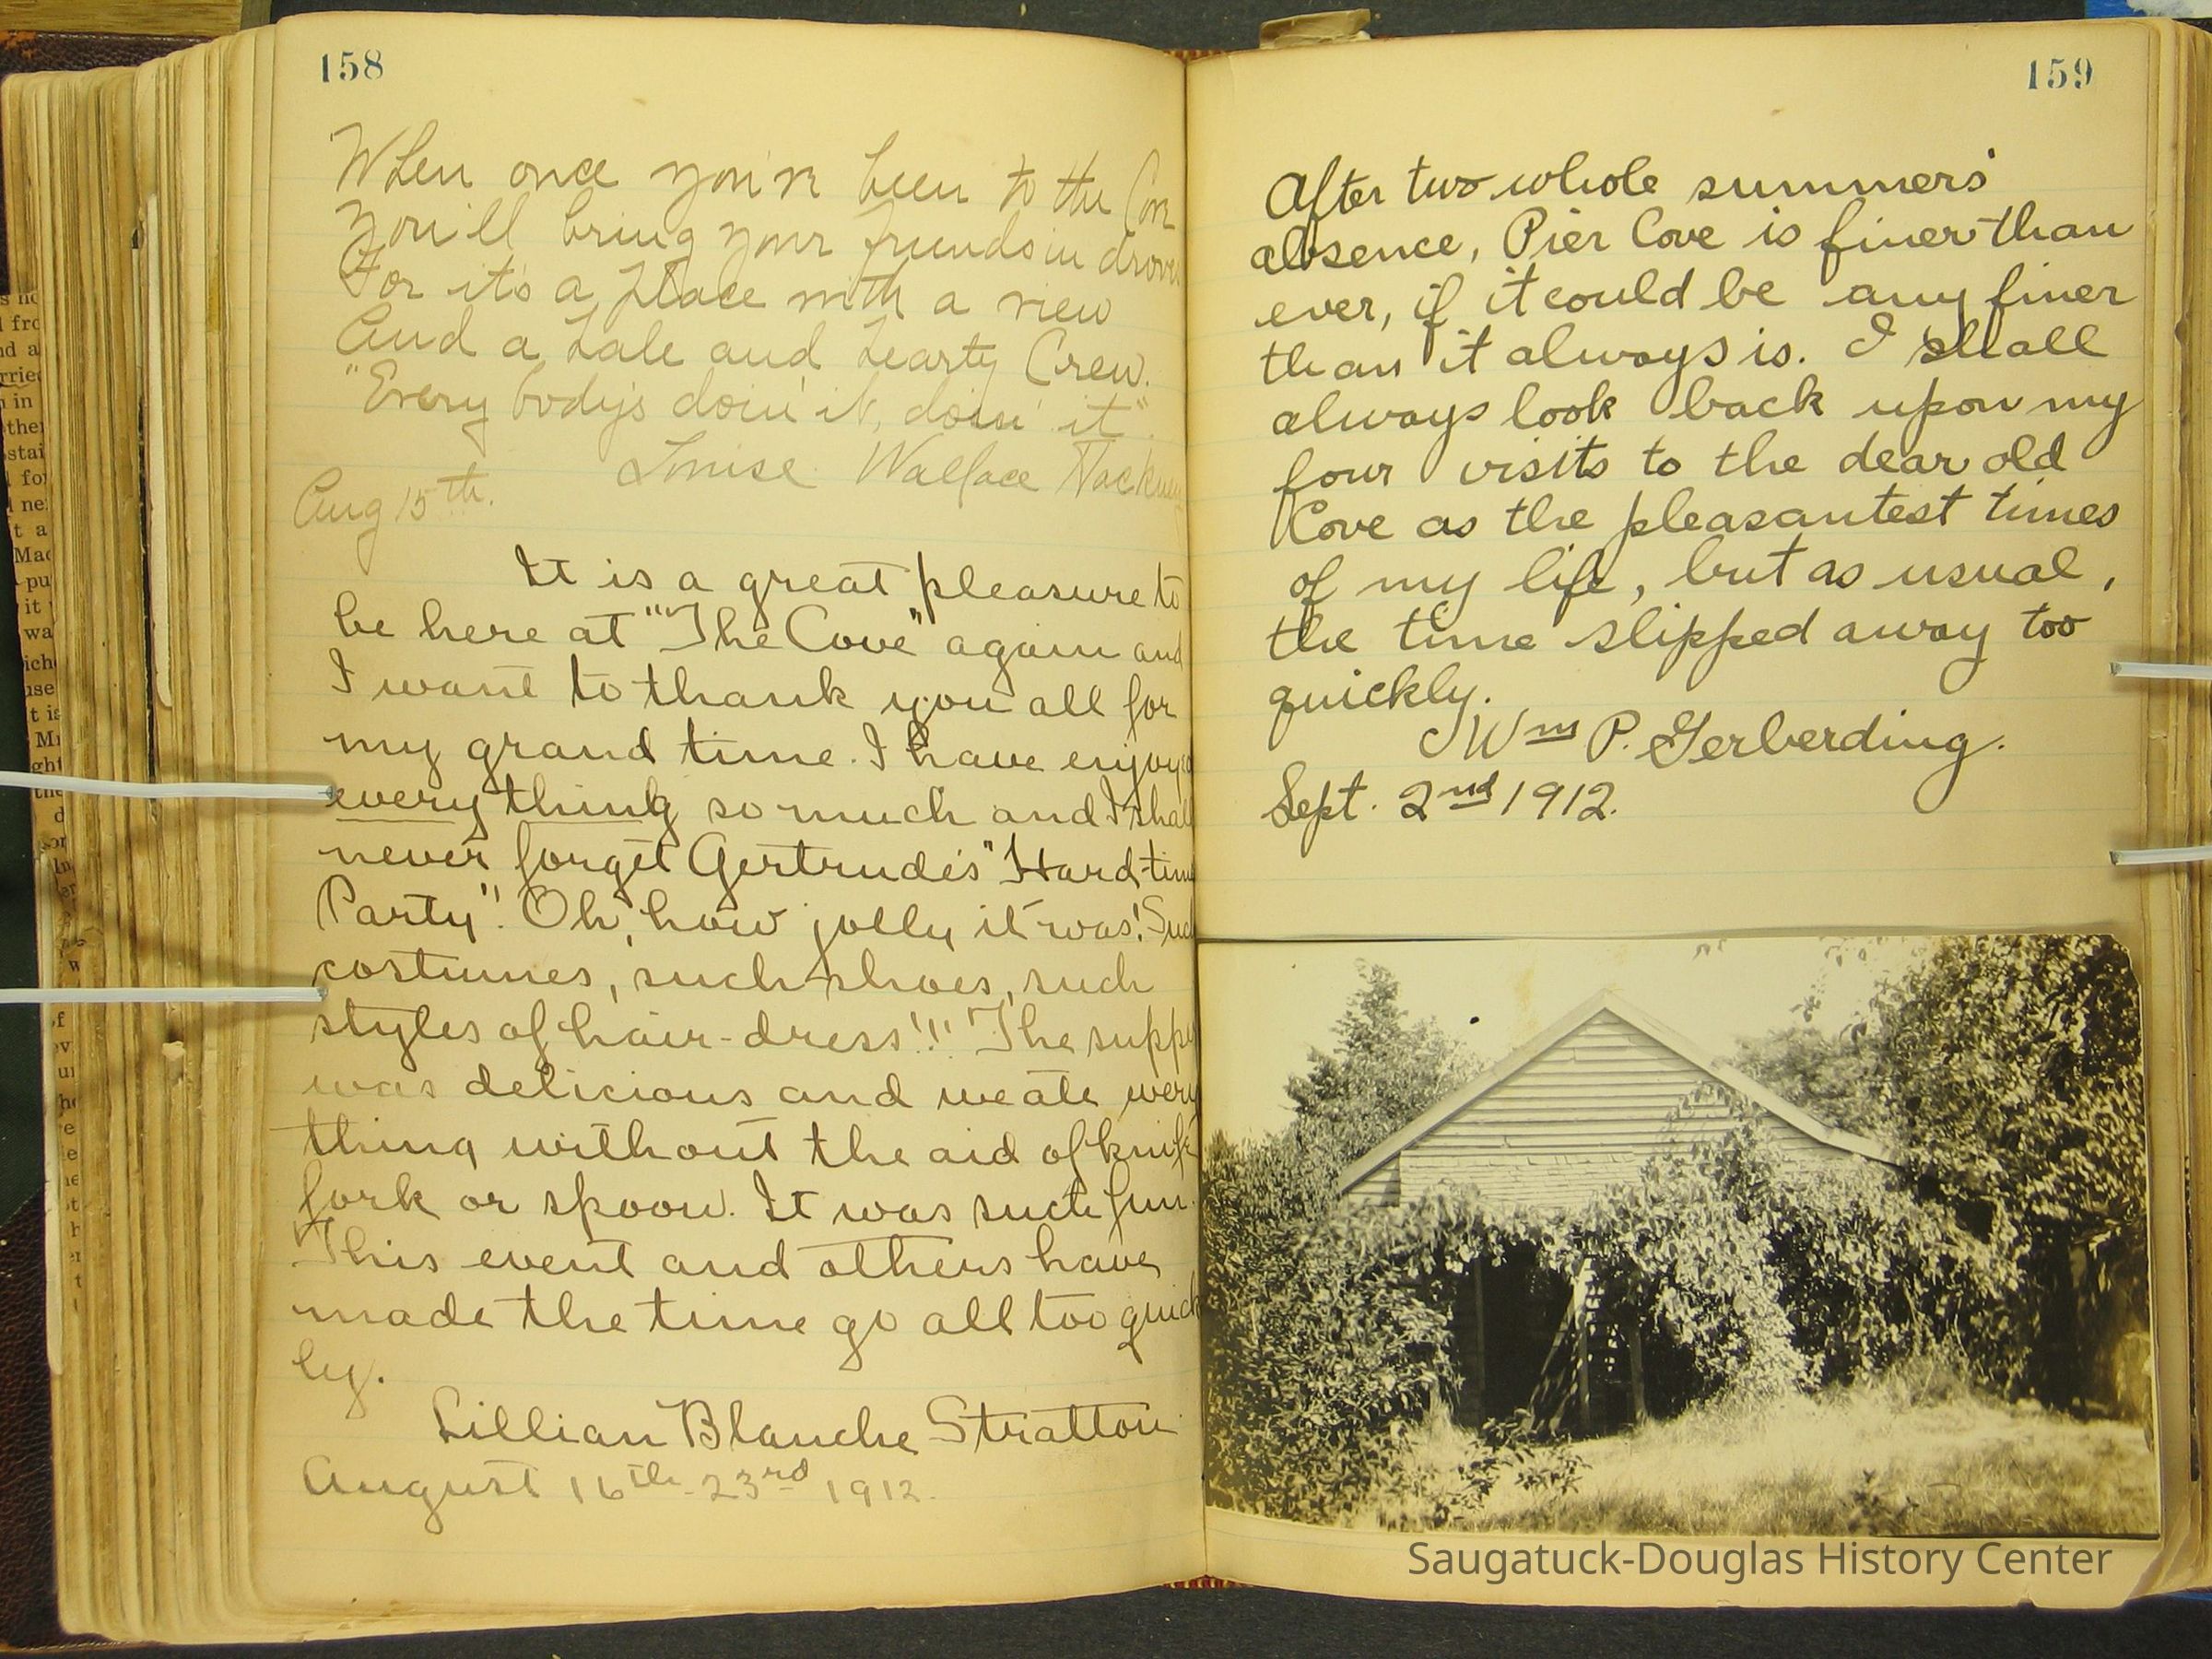 158
When once you've been to the Cove
You'll bring your friends in droves
For it's a place with a view
And a hale and hearty Crew.
"Every body's doin' it, doin' it".
Louise Wallace
Aug 15th.
It is a great pleasure to
be here at "The Cove" again and
I want to thank you all for
my grand time. I have enjoyed
everything so much and I shall
never forget Gertrude's "Hard-time
Party". Oh, how jolly it was! Such
costumes, such shoes, such
styles of hair-dress!!! The supper
was delicious and we ate every
thing without the aid of knife
fork or spoon. It was such fun.
This event and others have
made the time go all too quick
ly.
Lillian Blanche Stratton
August 16th-23rd 1912.
159
After two whole summers'
absence, Pier Cove is finer than
ever, if it could be any finer
than it always is. I shall
always look back upon my
four visits to the dear old
Cove as the pleasantest times
of my life, but as usual,
the time slipped away too
quickly.
Wm P. Gerberding.
Sept. 2nd 1912.
Saugatuck-Douglas History Center